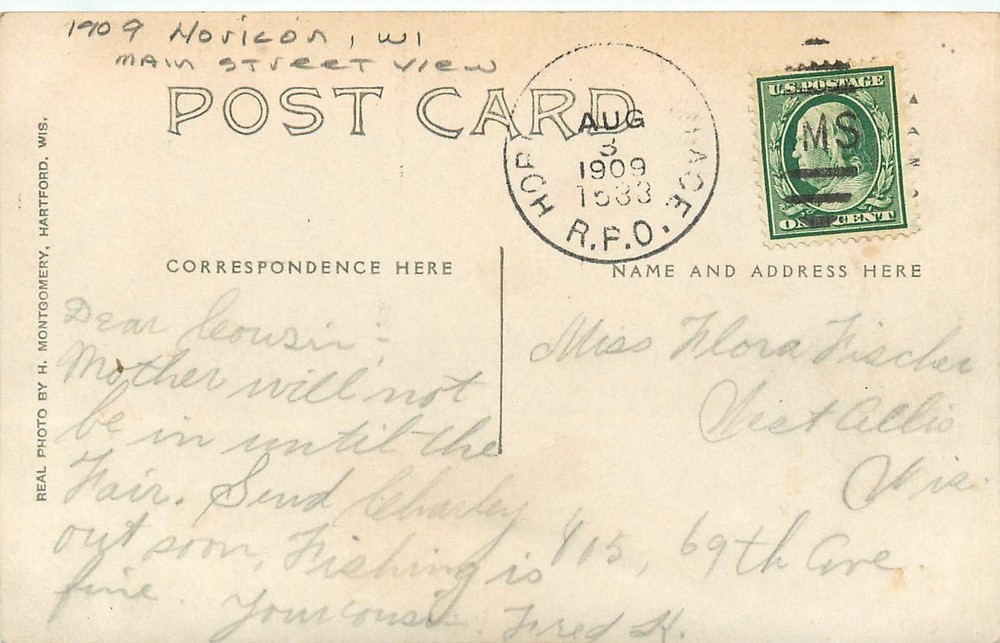 1909 Horicon, WI
Main Street View
POST CARD
AUG
3
1909
R.P.O.
U.S. POSTAGE
MS
ONE CENT
REAL PHOTO BY H. MONTGOMERY, HARTFORD, WIS.
CORRESPONDENCE HERE
NAME AND ADDRESS HERE
Dear Cousin:
Mother will not
be in until the
Fair. Send Charley
out soon, Fishing is
fine. Your cousin Fred K.
Miss Flora Fischer
West Allis
Wis.
69th Ave.